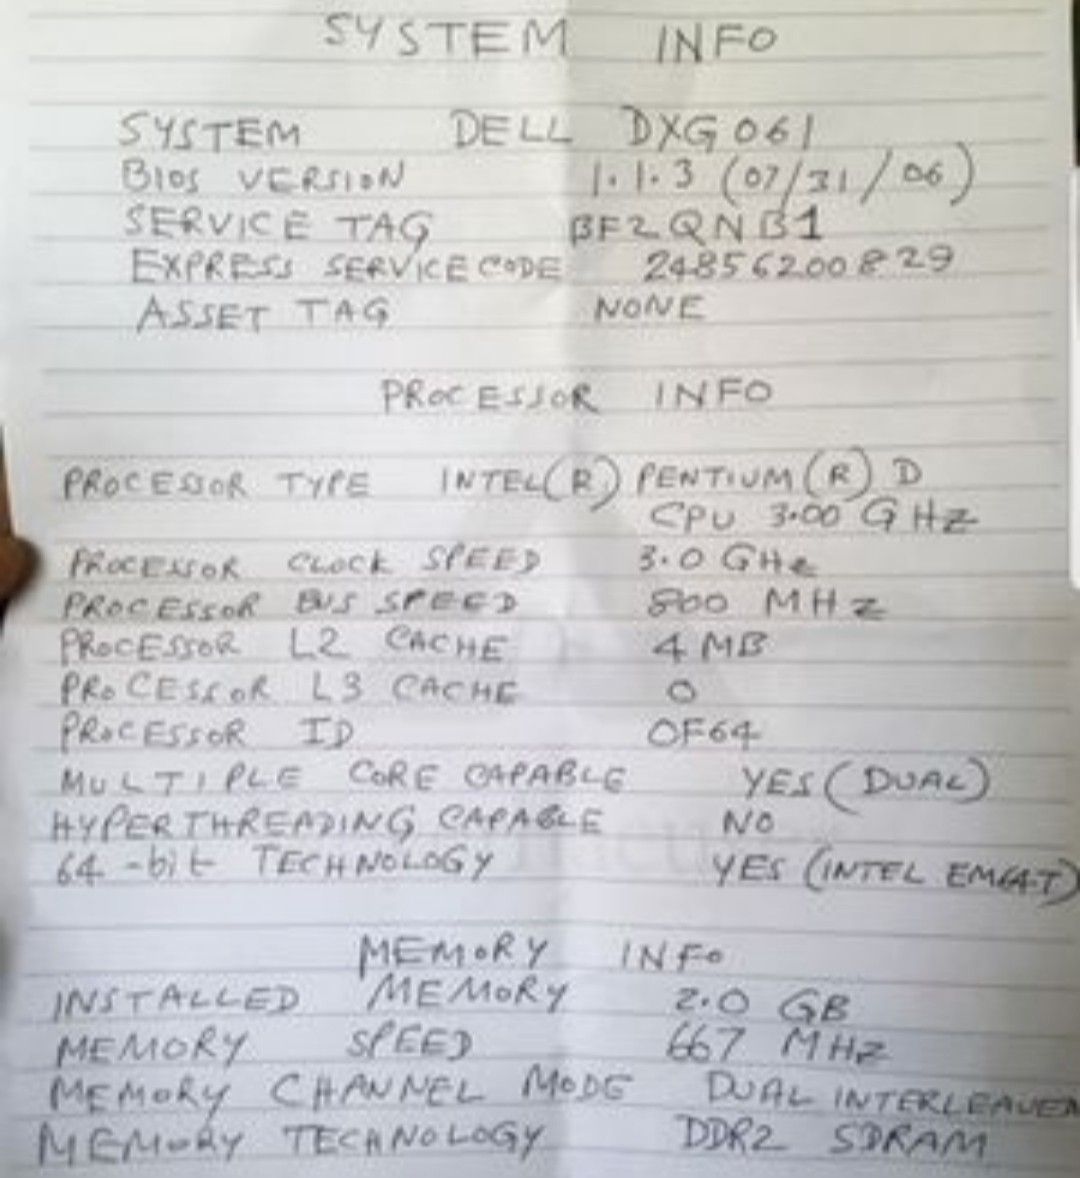 SYSTEM INFO
SYSTEM DELL DXG061
BIOS VERSION 1.1.3 (07/31/06)
SERVICE TAG BF2QNB1
EXPRESS SERVICE CODE 24856200829
ASSET TAG NONE
PROCESSOR INFO
PROCESSOR TYPE INTEL(R) PENTIUM(R) D
CPU 3.00 GHZ
PROCESSOR CLOCK SPEED 3.0 GHz
PROCESSOR BUS SPEED 800 MHz
PROCESSOR L2 CACHE 4 MB
PROCESSOR L3 CACHE 0
PROCESSOR ID OF64
MULTIPLE CORE CAPABLE YES (DUAL)
HYPERTHREADING CAPABLE NO
64-bit TECHNOLOGY YES (INTEL EM64T)
MEMORY INFO
INSTALLED MEMORY 2.0 GB
MEMORY SPEED 667 MHz
MEMORY CHANNEL MODE DUAL INTERLEAVED
MEMORY TECHNOLOGY DDR2 SDRAM